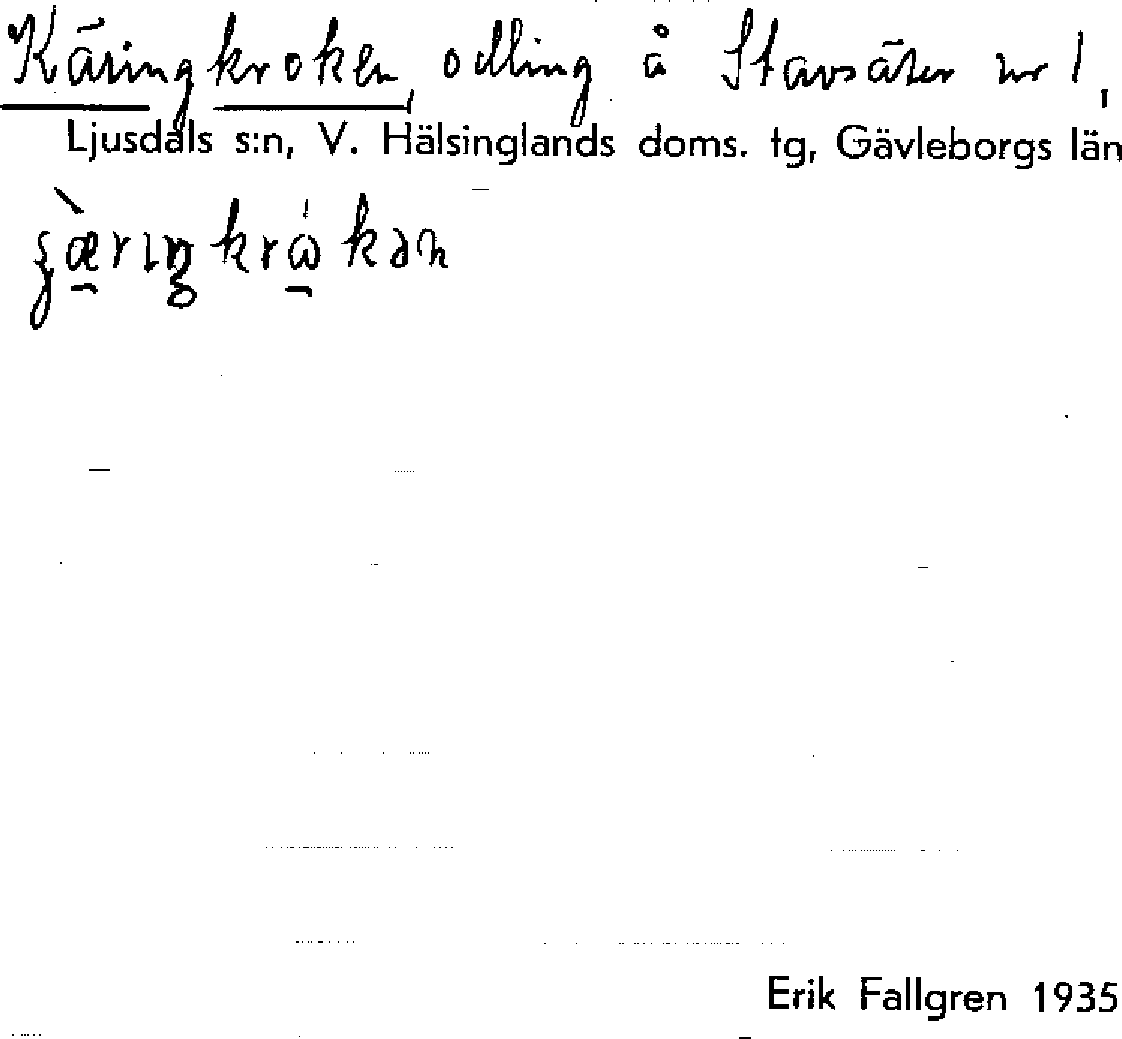 Käringkroken, odling å Stavsäter nr 1,
Ljusdals s:n, V. Hälsinglands doms. tg, Gävleborgs län
Erik Fallgren 1935